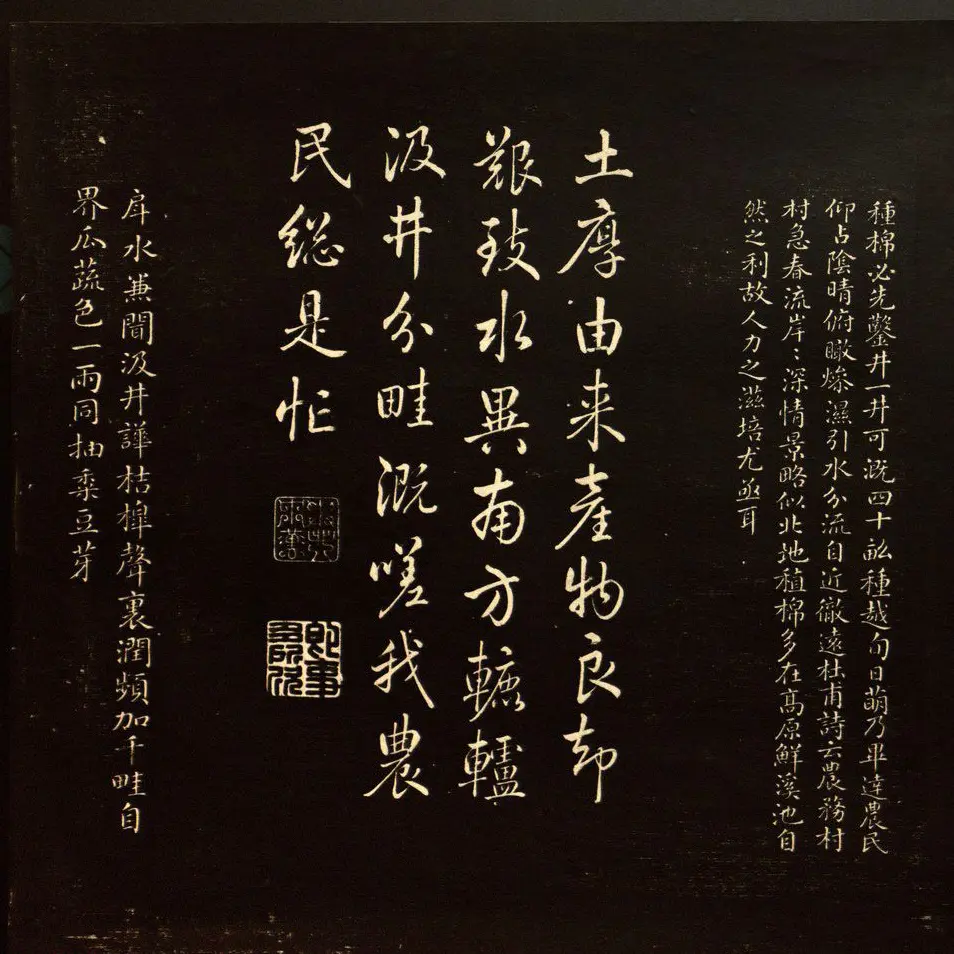 種棉必先鑿井一井可溉四十畝種越旬日萌乃畢達農民
仰占陰晴俯瞰燥濕引水分流自近徹遠杜甫詩云農務村
村急春流岸〻深情景略似北地植棉多在高原鮮溪池自
然之利故人力之滋培尤亟耳
土厚由来產物良却
艱致水異南方轆轤
汲井分畦溉嗟我農
民緫是忙
即事多所欣
戽水兼聞汲井譁桔槔聲裏潤頻加千畦自
界瓜蔬色一雨同抽黍豆芽